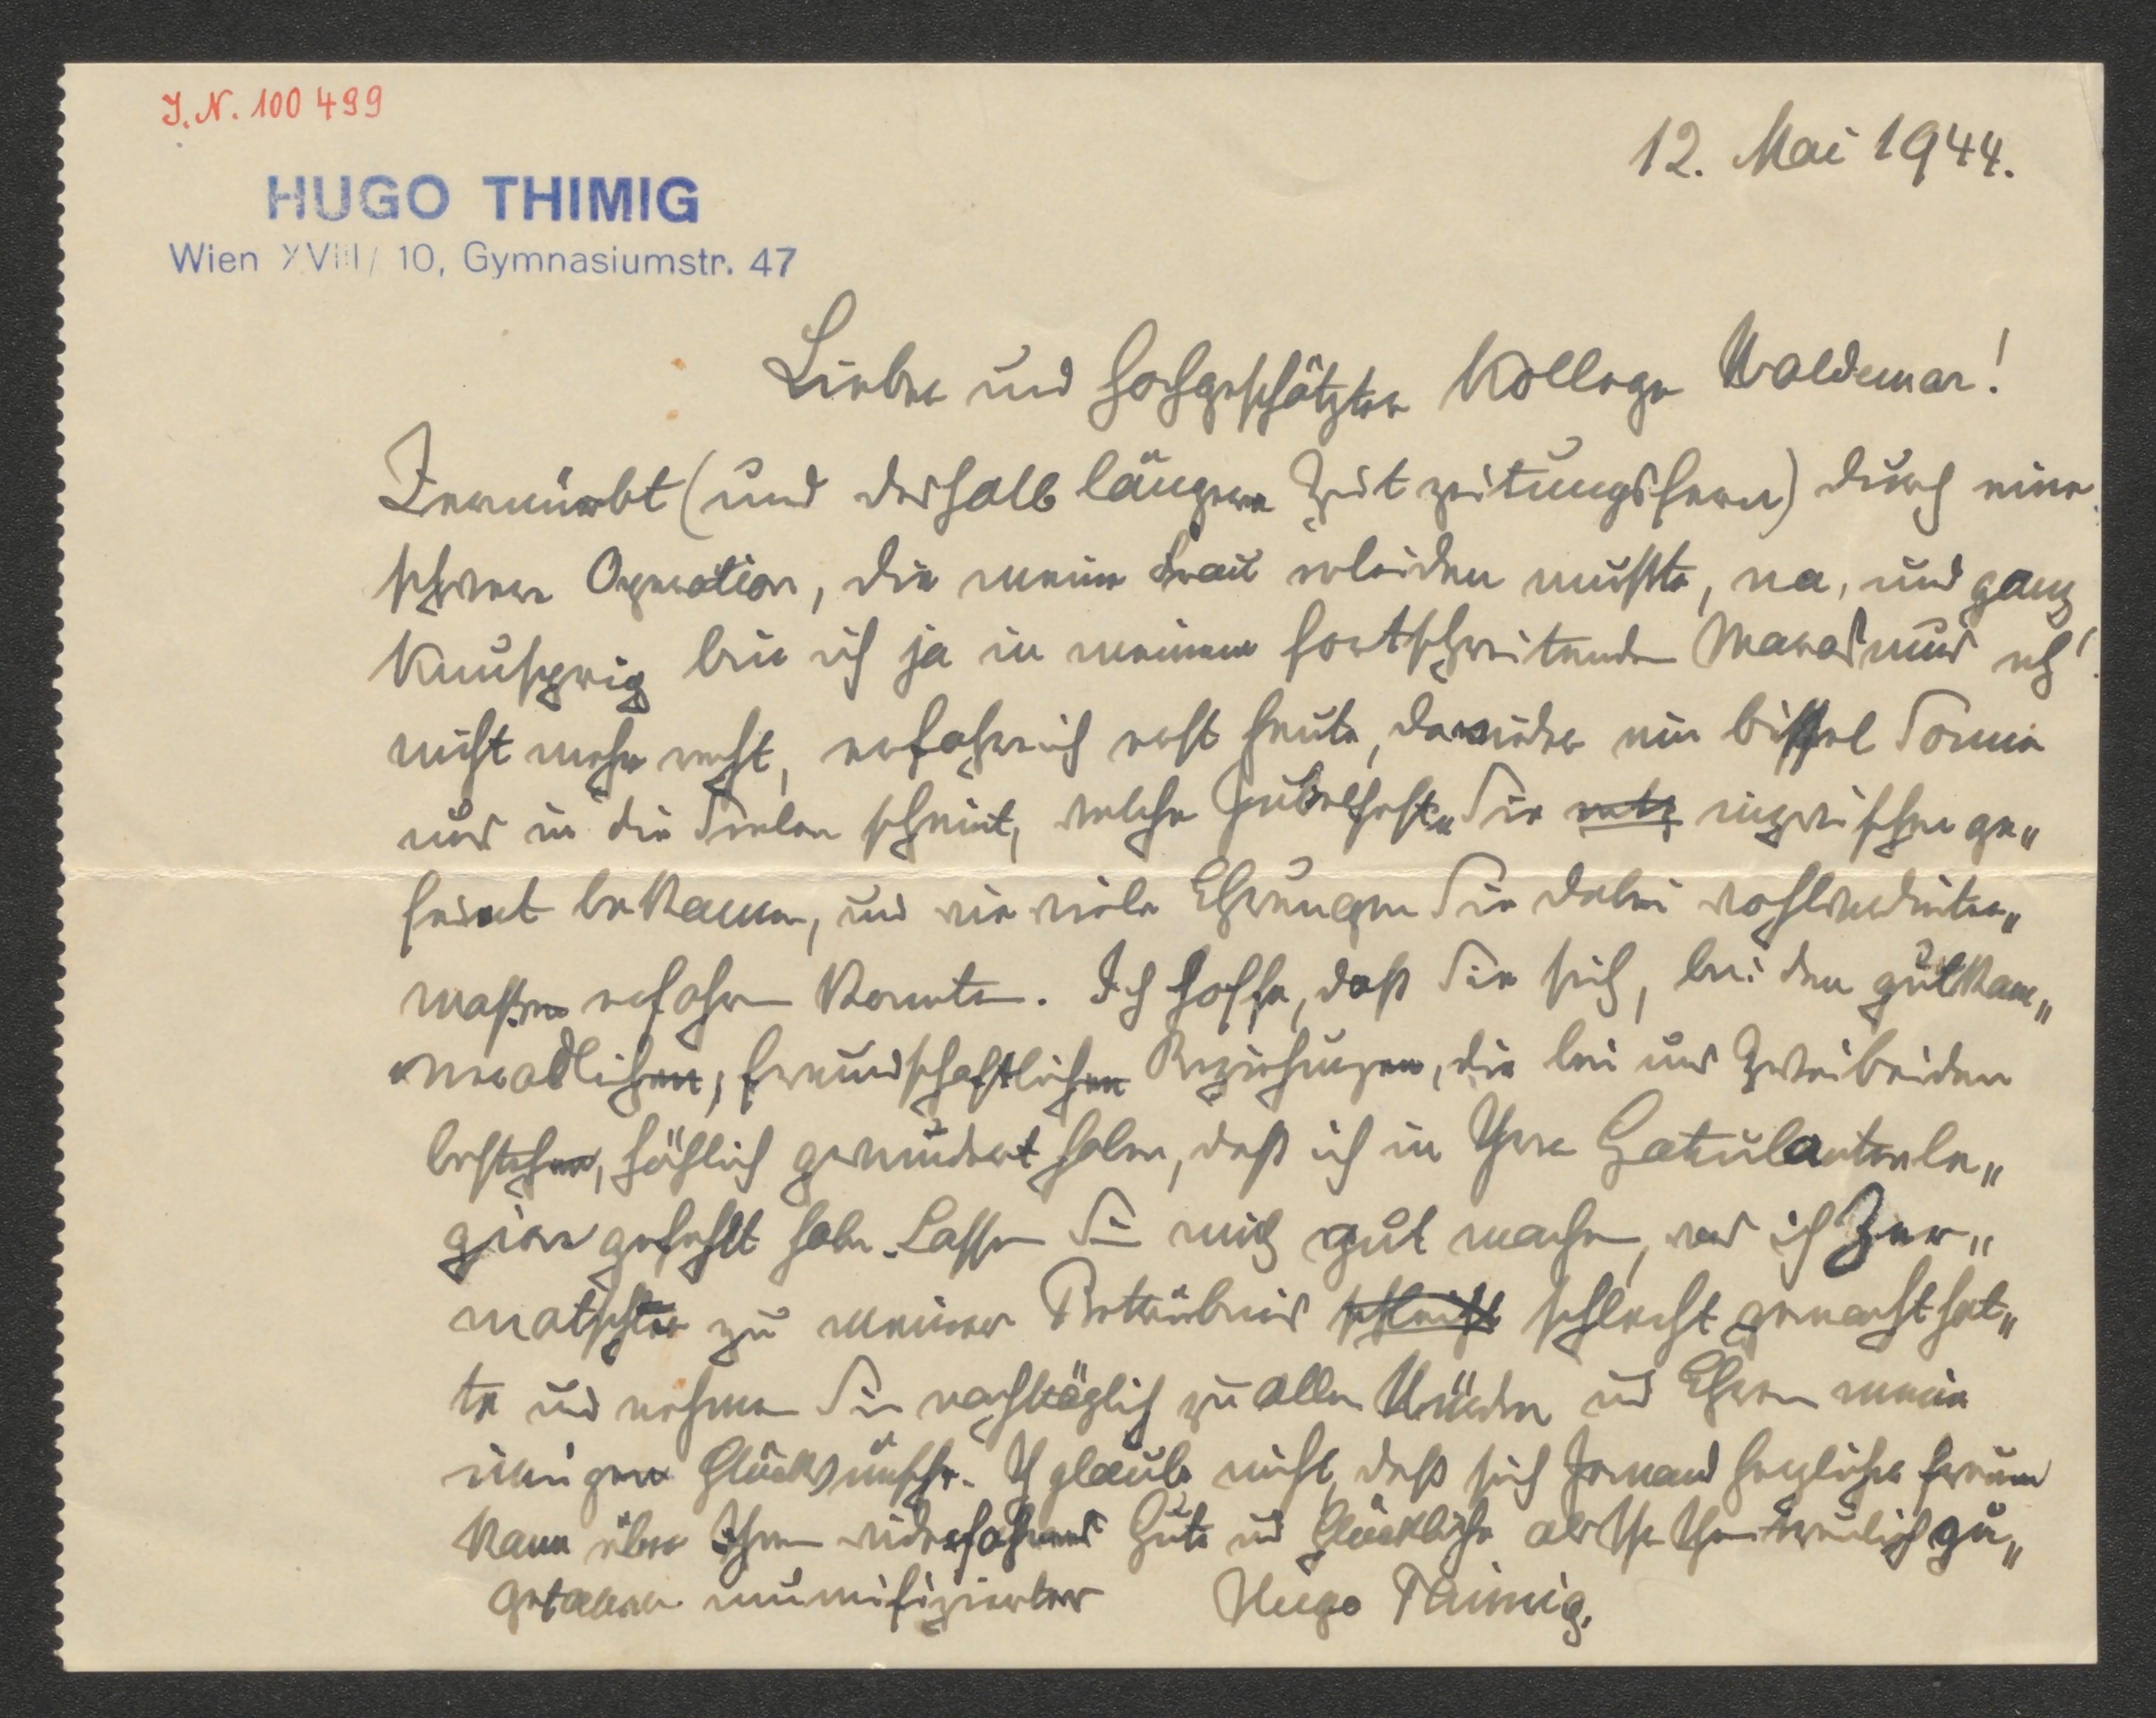 J. N. 100 499
12. Mai 1944.
HUGO THIMIG
Wien XVIII/10, Gymnasiumstr. 47
Lieber und hochgeschätzter Kollege Waldemar!
Zermürbt (und deshalb längere Zeit zeitungsfern) durch eine
schwere Operation, die meine Frau erleiden mußte, na, und ganz
knusprig bin ich ja in meinem fortschreitenden Marasmus eh'
nicht mehr recht, erfahre ich erst heute, da wieder ein bissel Sonne
uns in die Seelen scheint, welche Jubelfeste Sie inzwischen ge„
feiert bekamen, und wie viele Ehrungen Sie dabei wohlverdienter„
maßen erfahren konnten. Ich hoffe, daß Sie sich, bei den gutkam„
meradlichen, freundschaftlichen Beziehungen, die bei uns Zweibeiden
bestehen, höchlich gewundert haben, daß ich in Ihrer Gatulantenle„
gion gefehlt habe. Lassen Sie mich gut machen, was ich Zer„
matschter zu meiner Betrübnis schlecht gemacht hat„
te und nehmen Sie nachträglich zu allen Würden und Ehren meine
innigen Glückwünsche. Ich glaube nicht, daß sich Jemand herzlicher freuen
kann über Ihnen widerfahrenes Gute und Glückliche als Ihr Ihnen treulich zu„
getaner mumifizierter Hugo Thimig.